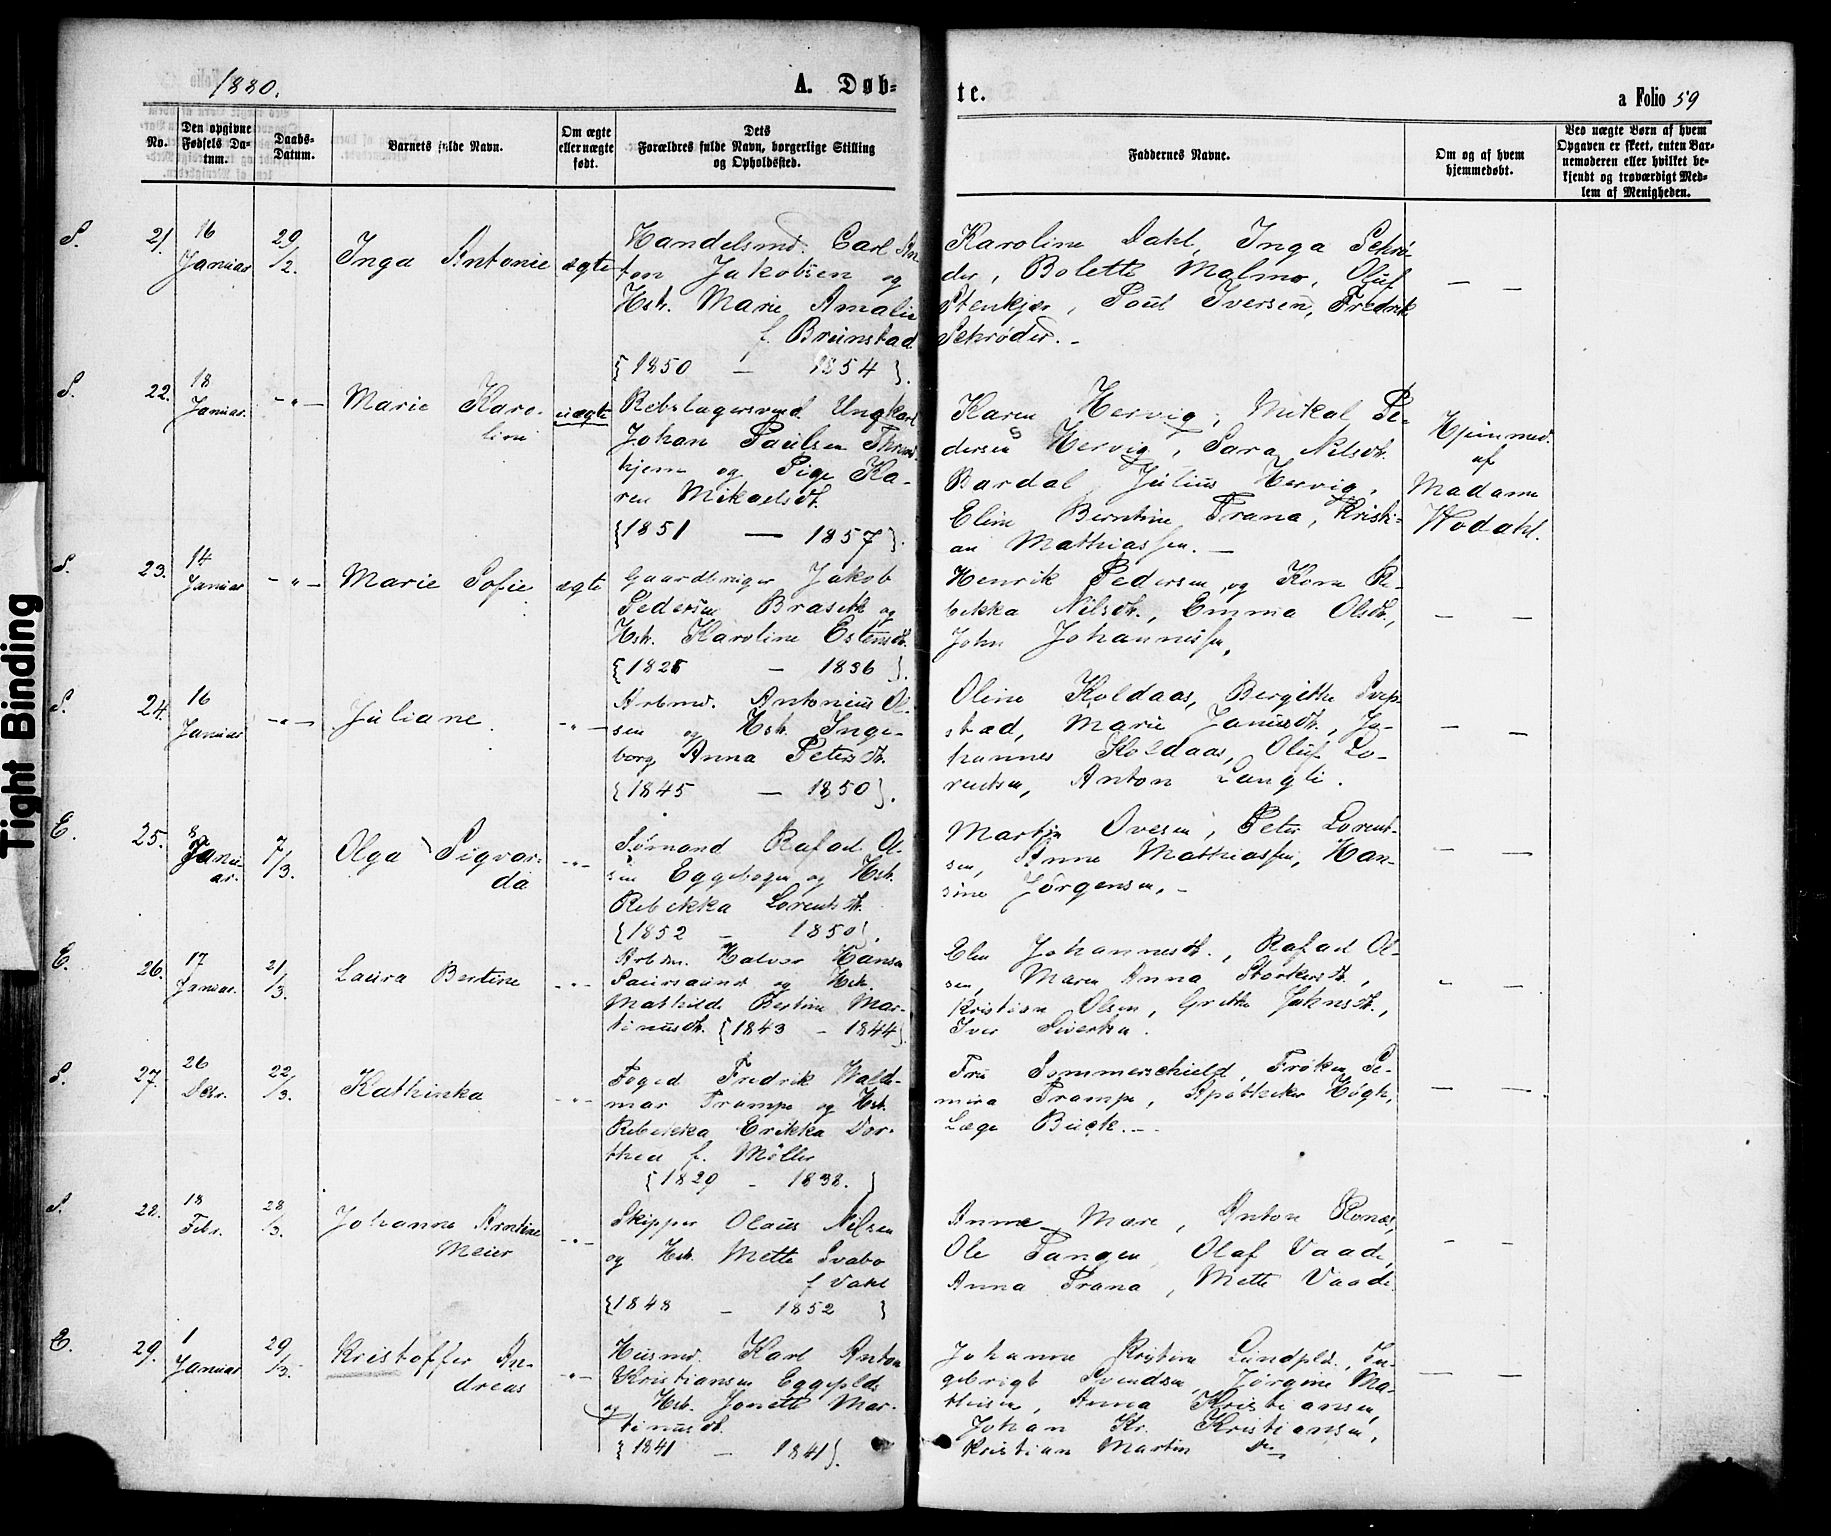 1880.
A. Døb-
te.
a Folio 59
No.
Den opgivne
Fødsels Da-
tum.
Daabs-
Datum.
Barnets fulde Navn.
Om ægte
eller uægte
født.
Dets
Forældres fulde Navn, borgerlige Stilling
og Opholdssted.
Faddernes Navne.
Om og af hvem
hjemmedøbt.
Ved uægte Børn af hvem
Opgaven er skeet, enten Bar-
nemoderen eller hvilket be-
kjendt og troværdigt Med-
lem af Menigheden.
S. 21. 16 Januar 29/2. Inga Antonie ægte
Handelsmd. Carl An-
ton Jakobsen og
Hst. Marie Amalie
f. Brunstad
{1850 — 1854}.
Karoline Dahl, Inga Schrø-
der, Bolette Malmo, Oluf
Stenkjær, Paul Iversen, Fredrik
Schrøder. -
— —
S. 22. 18 Januar. - " - Marie Karo-
line
uægte
Rebslagersvend Ungkarl
Johan Paulsen Thrond-
hjem og Pige Ka-
ren Mikaelsdt.
{1851 — 1857}.
Karen Hervig, Mikal Pe-
dersen Hervig, Sara Nilsdt.
Bardal, Julius Hervig,
Eline Berntine Trana, Kristi-
an Mathiassen. —
Hjemmed.
af
Madame
Wodahl.
S. 23. 14 Januar - " - Marie Sofie ægte
Gaardbruger Jakob
Pedersen Braseth og
Hst. Karoline Estensdt.
{1825 — 1836}.
Henrik Pedersen og Kone Re-
bekka Nilsdt., Emma Olsdt.,
John Johannessen.
— —
S. 24. 16 Januar - " - Juliane. - " -
Arbmd. Antonius Ol-
sen og Hst. Inge-
borg Anna Petersdt.
{1845 — 1850}.
Oline Koldaas, Bergitte
stad, Marie Janusdt., Jo-
hannes Koldaas, Oluf Lo-
rentsen, Anton Langli.
— —
E. 25. 8 Janu-
ar. 7/3. Olga Sigvar-
da - " -
Sømand Rafael Ol-
sen Eggebogen og Hst.
Rebekka Lorentsdt.
{1852 — 1850}.
Martin Ovesen, Peter Lorent-
sen, Anne Mathiassen, Han-
sine Jørgensen. -
— —
E. 26. 17 Januar. 21/3. Laura Bertine - " -
Arbm. Halvor Hansen
og Hst.
Mathilde Bertine Mar-
tinusdt. {1843 — 1844}
Elen Johannesdt., Rafael Ol-
sen, Maren Anna Storkersdt.,
Kristian Olsen, Grethe Johnsdt.,
Iver Sivertsen.
- —
S. 27. 26 Decbr. 22/3. Kathinka - " -
Foged Fredrik Walde-
mar Trampe og Hst.
Rebekka Erikka Dor-
thea f. Møller
{1829 — 1838.}
Fru Sommerschield, Frøken Se-
mira Trampe, Apotheker Høgh,
Læge Buck. —
— —
S. 28. 18 Febr. 28/3. Johanna Arntine
Meier - " -
Skipper Olaus Nilsen
og Hst. Mette Svabo
f. Dahl
{1848 — 1852}
Anne Mære, Anton Ronæs,
Ole Tangen, Olaf Vaade,
Anna Trana, Mette Vaade.
— —
E. 29. 1 Januar 29/3. Kristoffer An-
dreas - " -
Husmd. Karl Anton
Kristiansen Eggepld.
og Hst. Jonette Mar-
tinusdt.
{1841 — 1841}.
Johanna Kristine Lundpld., In-
gebrigt Svendsen, Jørgine Ma-
thisen, Anna Kristiansen,
Johan Kr. Kristiansen,
Kristian Martin Do
— —
Tight Binding